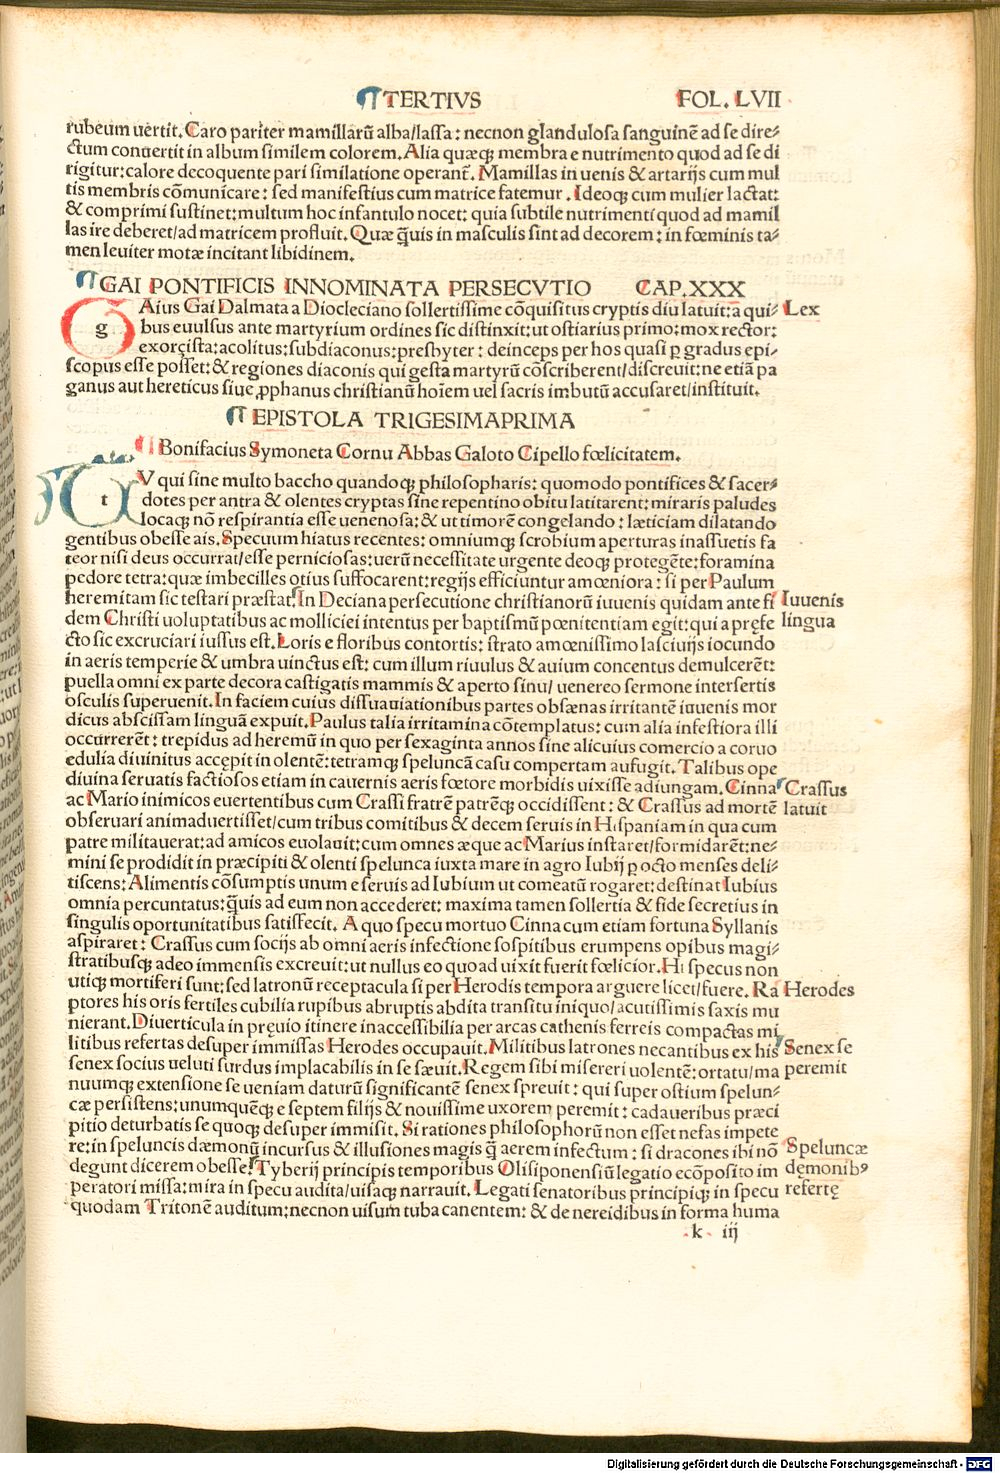 ¶ TERTIVS FOL. LVII
rubeum uertit. Caro pariter mamillarū alba/laſſa: necnon glanduloſa ſanguinē ad ſe dire⸗
ctum conuertit in album ſimilem colorem. Alia quæq; membra e nutrimento quod ad ſe di
rigitur: calore decoquente pari ſimilatione operant̃. Mamillas in uenis & artarijs cum mul
tis membris cōmunicare: ſed manifeſtius cum matrice fatemur. Ideoq; cum mulier lactat:
& comprimi ſuſtinet: multum hoc infantulo nocet: quia ſubtile nutrimenti quod ad mamil
las ire deberet/ad matricem profluit. Quæ q̃uis in maſculis ſint ad decorem: in fœminis ta⸗
men leuiter motæ incitant libidinem.
¶ GAI PONTIFICIS INNOMINATA PERSECVTIO CAP. XXX
g AIus Gai Dalmata a Diocleciano ſollertiſſime cōquiſitus cryptis diu latuit: a qui⸗ Lex
bus euulſus ante martyrium ordines ſic diſtinxit: ut oſtiarius primo: mox rector:
exorciſta: acolitus: ſubdiaconus: preſbyter: deinceps per hos quaſi p gradus epi⸗
ſcopus eſſe poſſet: & regiones diaconis qui geſta martyrū cōſcriberent/diſcreuit: ne etiā pa
ganus aut hereticus ſiue ꝓphanus chriſtianū hoīem uel ſacris imbutū accuſaret/inſtituit.
¶ EPISTOLA TRIGESIMAPRIMA
¶ Bonifacius Symoneta Cornu Abbas Galoto Cipello fœlicitatem.
t V qui ſine multo baccho quandoq; philoſopharis: quomodo pontifices & ſacer⸗
dotes per antra & olentes cryptas ſine repentino obitu latitarent: miraris paludes
locaq; nō reſpirantia eſſe uenenoſa: & ut timorē congelando: læticiam dilatando
gentibus obeſſe ais. Specuum hiatus recentes: omniumq; ſcrobium aperturas inaſſuetis fa
teor niſi deus occurrat/eſſe pernicioſas: uerū neceſſitate urgente deoq; protegēte: foramina
pedore tetra: quæ imbecilles otius ſuffocarent: regijs efficiuntur amœniora: ſi per Paulum
heremitam ſic teſtari præſtat. In Deciana perſecutione chriſtianorū iuuenis quidam ante fi Iuuenis
dem Chriſti uoluptatibus ac molliciei intentus per baptiſmū pœnitentiam egit: qui a pręfe lingua
cto ſic excruciari iuſſus eſt. Loris e floribus contortis: ſtrato amœniſſimo laſciuijs iocundo
in aeris temperie & umbra uinctus eſt: cum illum riuulus & auium concentus demulcerēt:
puella omni ex parte decora caſtigatis mammis & aperto ſinu/ uenereo ſermone interſertis
oſculis ſuperuenit. In faciem cuius diſſuauiationibus partes obſænas irritantē iuuenis mor
dicus abſciſſam linguā expuit. Paulus talia irritamina cōtemplatus: cum alia infeſtiora illi
occurrerēt: trepidus ad heremū in quo per ſexaginta annos ſine alicuius comercio a coruo
edulia diuinitus accępit in olentē: tetramq; ſpeluncā caſu compertam aufugit. Talibus ope
diuina ſeruatis factioſos etiam in cauernis aeris fœtore morbidis uixiſſe adiungam. Cinna Craſſus
ac Mario inimicos euertentibus cum Craſſi fratrē patrēq; occidiſſent: & Craſſus ad mortē latuit
obſeruari animaduertiſſet/cum tribus comitibus & decem ſeruis in Hiſpaniam in qua cum
patre militauerat: ad amicos euolauit: cum omnes æque ac Marius inſtaret/formidarēt: ne⸗
mini ſe prodidit in præcipiti & olenti ſpelunca iuxta mare in agro Iubij p octo menſes deli⸗
tiſcens: Alimentis cōſumptis unum e ſeruis ad Iubium ut comeatū rogaret: deſtinat Iubius
omnia percuntatus: q̃uis ad eum non accederet: maxima tamen ſollertia & fide ſecretius in
ſingulis oportunitatibus ſatiſfecit. A quo ſpecu mortuo Cinna cum etiam fortuna Syllanis
aſpiraret: Craſſus cum ſocijs ab omni aeris infectione ſoſpitibus erumpens opibus magi⸗
ſtratibuſq; adeo immenſis excreuit: ut nullus eo quo ad uixit fuerit fœlicior. Hi ſpecus non
utiq; mortiferi ſunt: ſed latronū receptacula ſi per Herodis tempora arguere licet/fuere. Ra Herodes
ptores his oris fertiles cubilia rupibus abruptis abdita tranſitu iniquo/acutiſſimis ſaxis mu
nierant. Diuerticula in pręuio itinere inacceſſibilia per arcas cathenis ferreis compactas mi
litibus refertas deſuper immiſſas Herodes occupauit. Militibus latrones necantibus ex his Senex ſe
ſenex ſocius ueluti ſurdus implacabilis in ſe ſæuit. Regem ſibi miſereri uolentē: ortatu/ma peremit
nuumq; extenſione ſe ueniam daturū ſignificantē ſenex ſpreuit: qui ſuper oſtium ſpelun⸗
cæ perſiſtens: unumquēq; e ſeptem filijs & nouiſſime uxorem peremit: cadaueribus præci
pitio deturbatis ſe quoq; deſuper immiſit. Si rationes philoſophorū non eſſet nefas impete
re: in ſpeluncis dæmonū incurſus & illuſiones magis q̃ aerem infectum: ſi dracones ibi nō Speluncæ
degunt dicerem obeſſe. Tyberij principis temporibus Oliſiponenſiū legatio ecōpoſito im demonibꝰ
peratori miſſa: mira in ſpecu audita/uiſaq; narrauit. Legati ſenatoribus principiq; in ſpecu refertę
quodam Tritonē auditum: necnon uiſum tuba canentem: & de nereidibus in forma huma
k iij
Digitalisierung gefördert durch die Deutsche Forschungsgemeinschaft - DFG